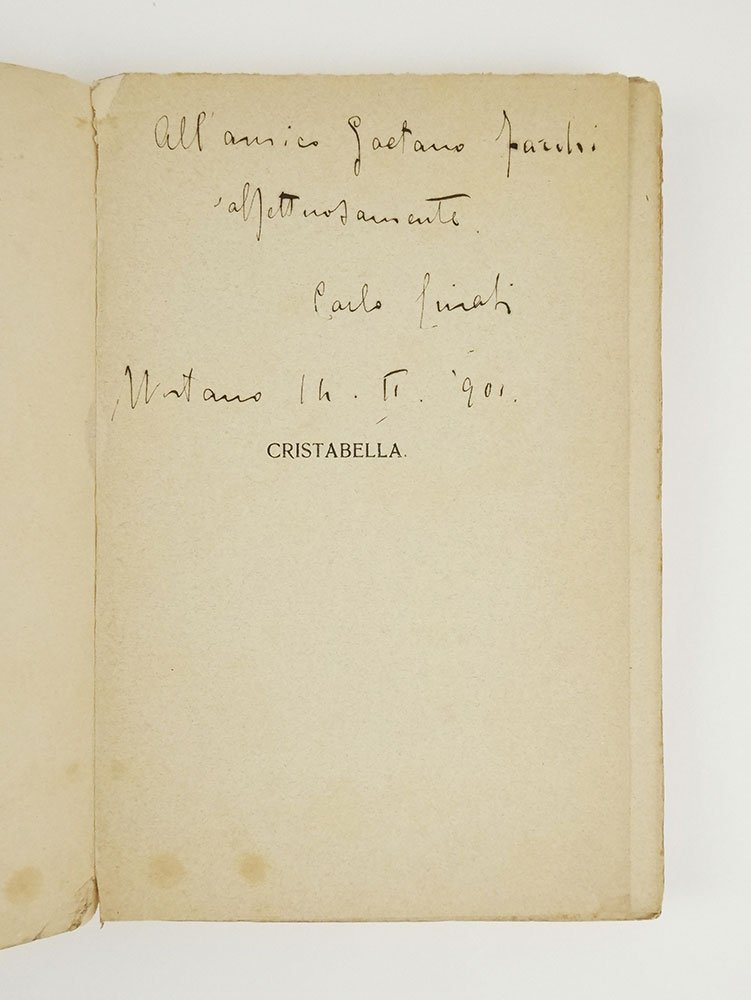 All'amico Gaetano Facchi
affettuosamente.
Carlo Linati
14 . II .
CRISTABELLA.